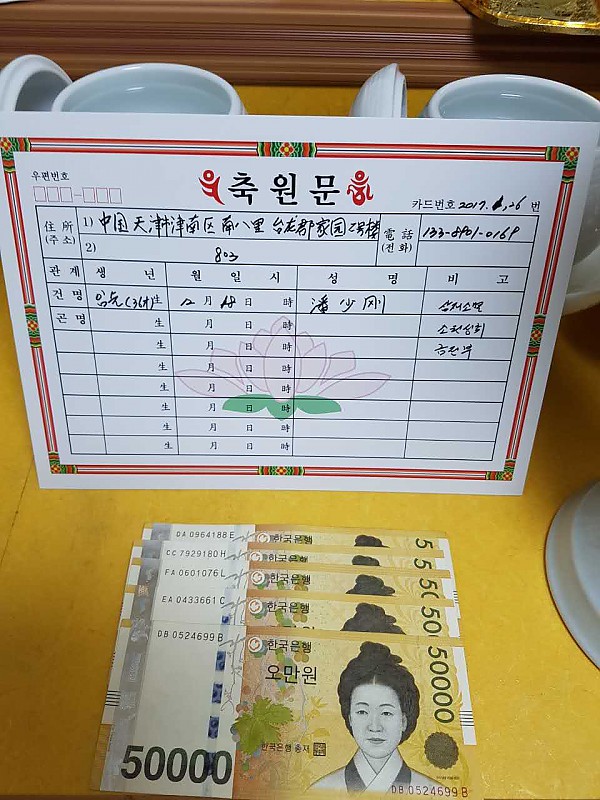 축원문
우편번호
카드번호 2017. 6. 26 번
住所 (주소) 1) 中国 天津 津南区 南八里 台北都家园 2号楼 電話 (전화) 133-8901-0168
2) 803
관계 생년 월일시 성명 비고
건명 임술(36세) 生 12 月 18 日 時 潘少刚 삼재소멸
곤명 生 月 日 時 소원성취
生 月 日 時 금전부
生 月 日 時
生 月 日 時
生 月 日 時
生 月 日 時
DA 0964188 E 한국은행 5
CC 7929180 H 한국은행 5
FA 0601076 L 한국은행 50
EA 0433661 C 한국은행 500
DB 0524699 B 한국은행 50000
오만원
한국은행 총재
50000
DB 0524699 B